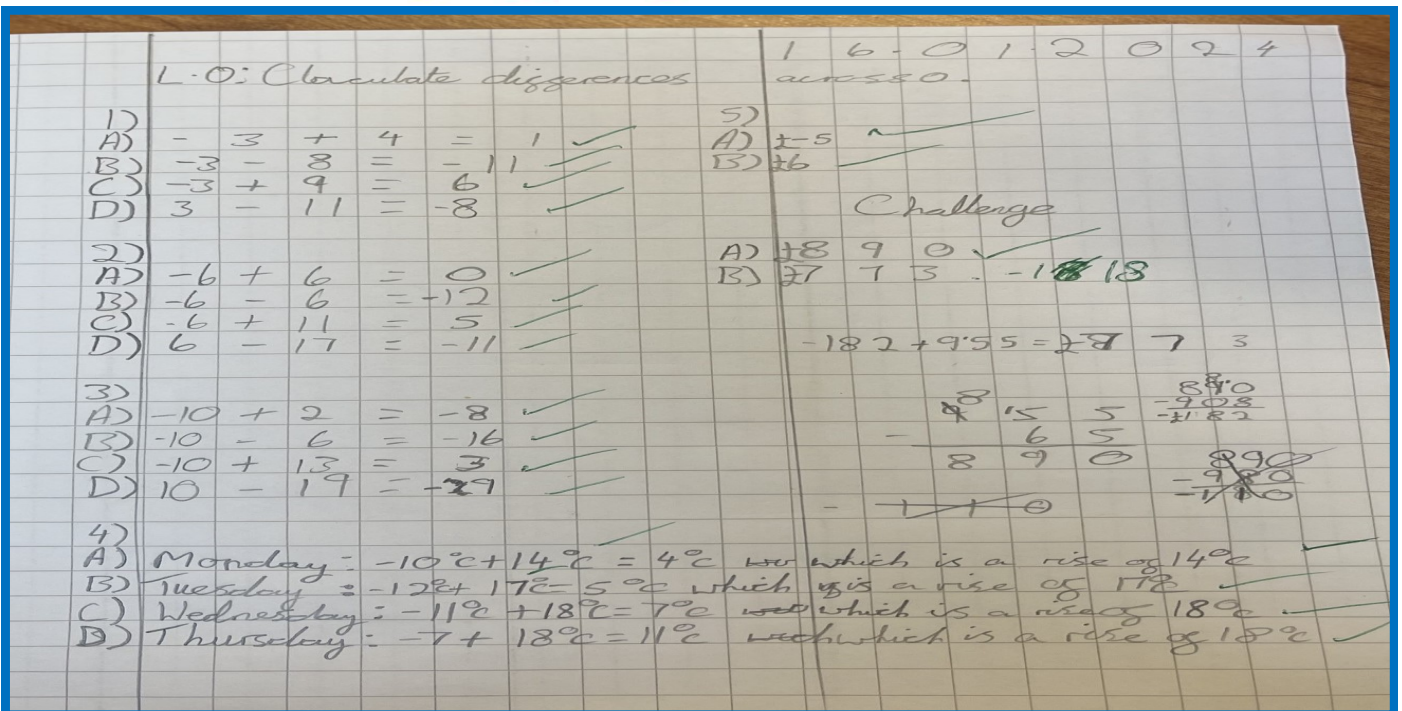 16-01-2024
L.O: Claculate differences across 0.
1)
A) -3 + 4 = 1
B) -3 - 8 = -11
C) -3 + 9 = 6
D) 3 - 11 = -8
2)
A) -6 + 6 = 0
B) -6 - 6 = -12
C) -6 + 11 = 5
D) 6 - 17 = -11
3)
A) -10 + 2 = -8
B) -10 - 6 = -16
C) -10 + 13 = 3
D) 10 - 19 = -9
4)
A) Monday: -10°c+14°c = 4°c which is a rise of 14°c
B) Tuesday: -12°+ 17°= 5°c which is a rise of 17°c
C) Wednesday: -11°c +18°c= 7°c which is a rise of 18°c
D) Thursday: -7 + 18°c = 11°c which is a rise of 18°c
5)
A) ±-5
B) ±6
Challenge
A) ±890
B) 773. -18
-182 + 955 = 773
8 15 5
- 6 5
8 9 0
890
- 908
- 182
890